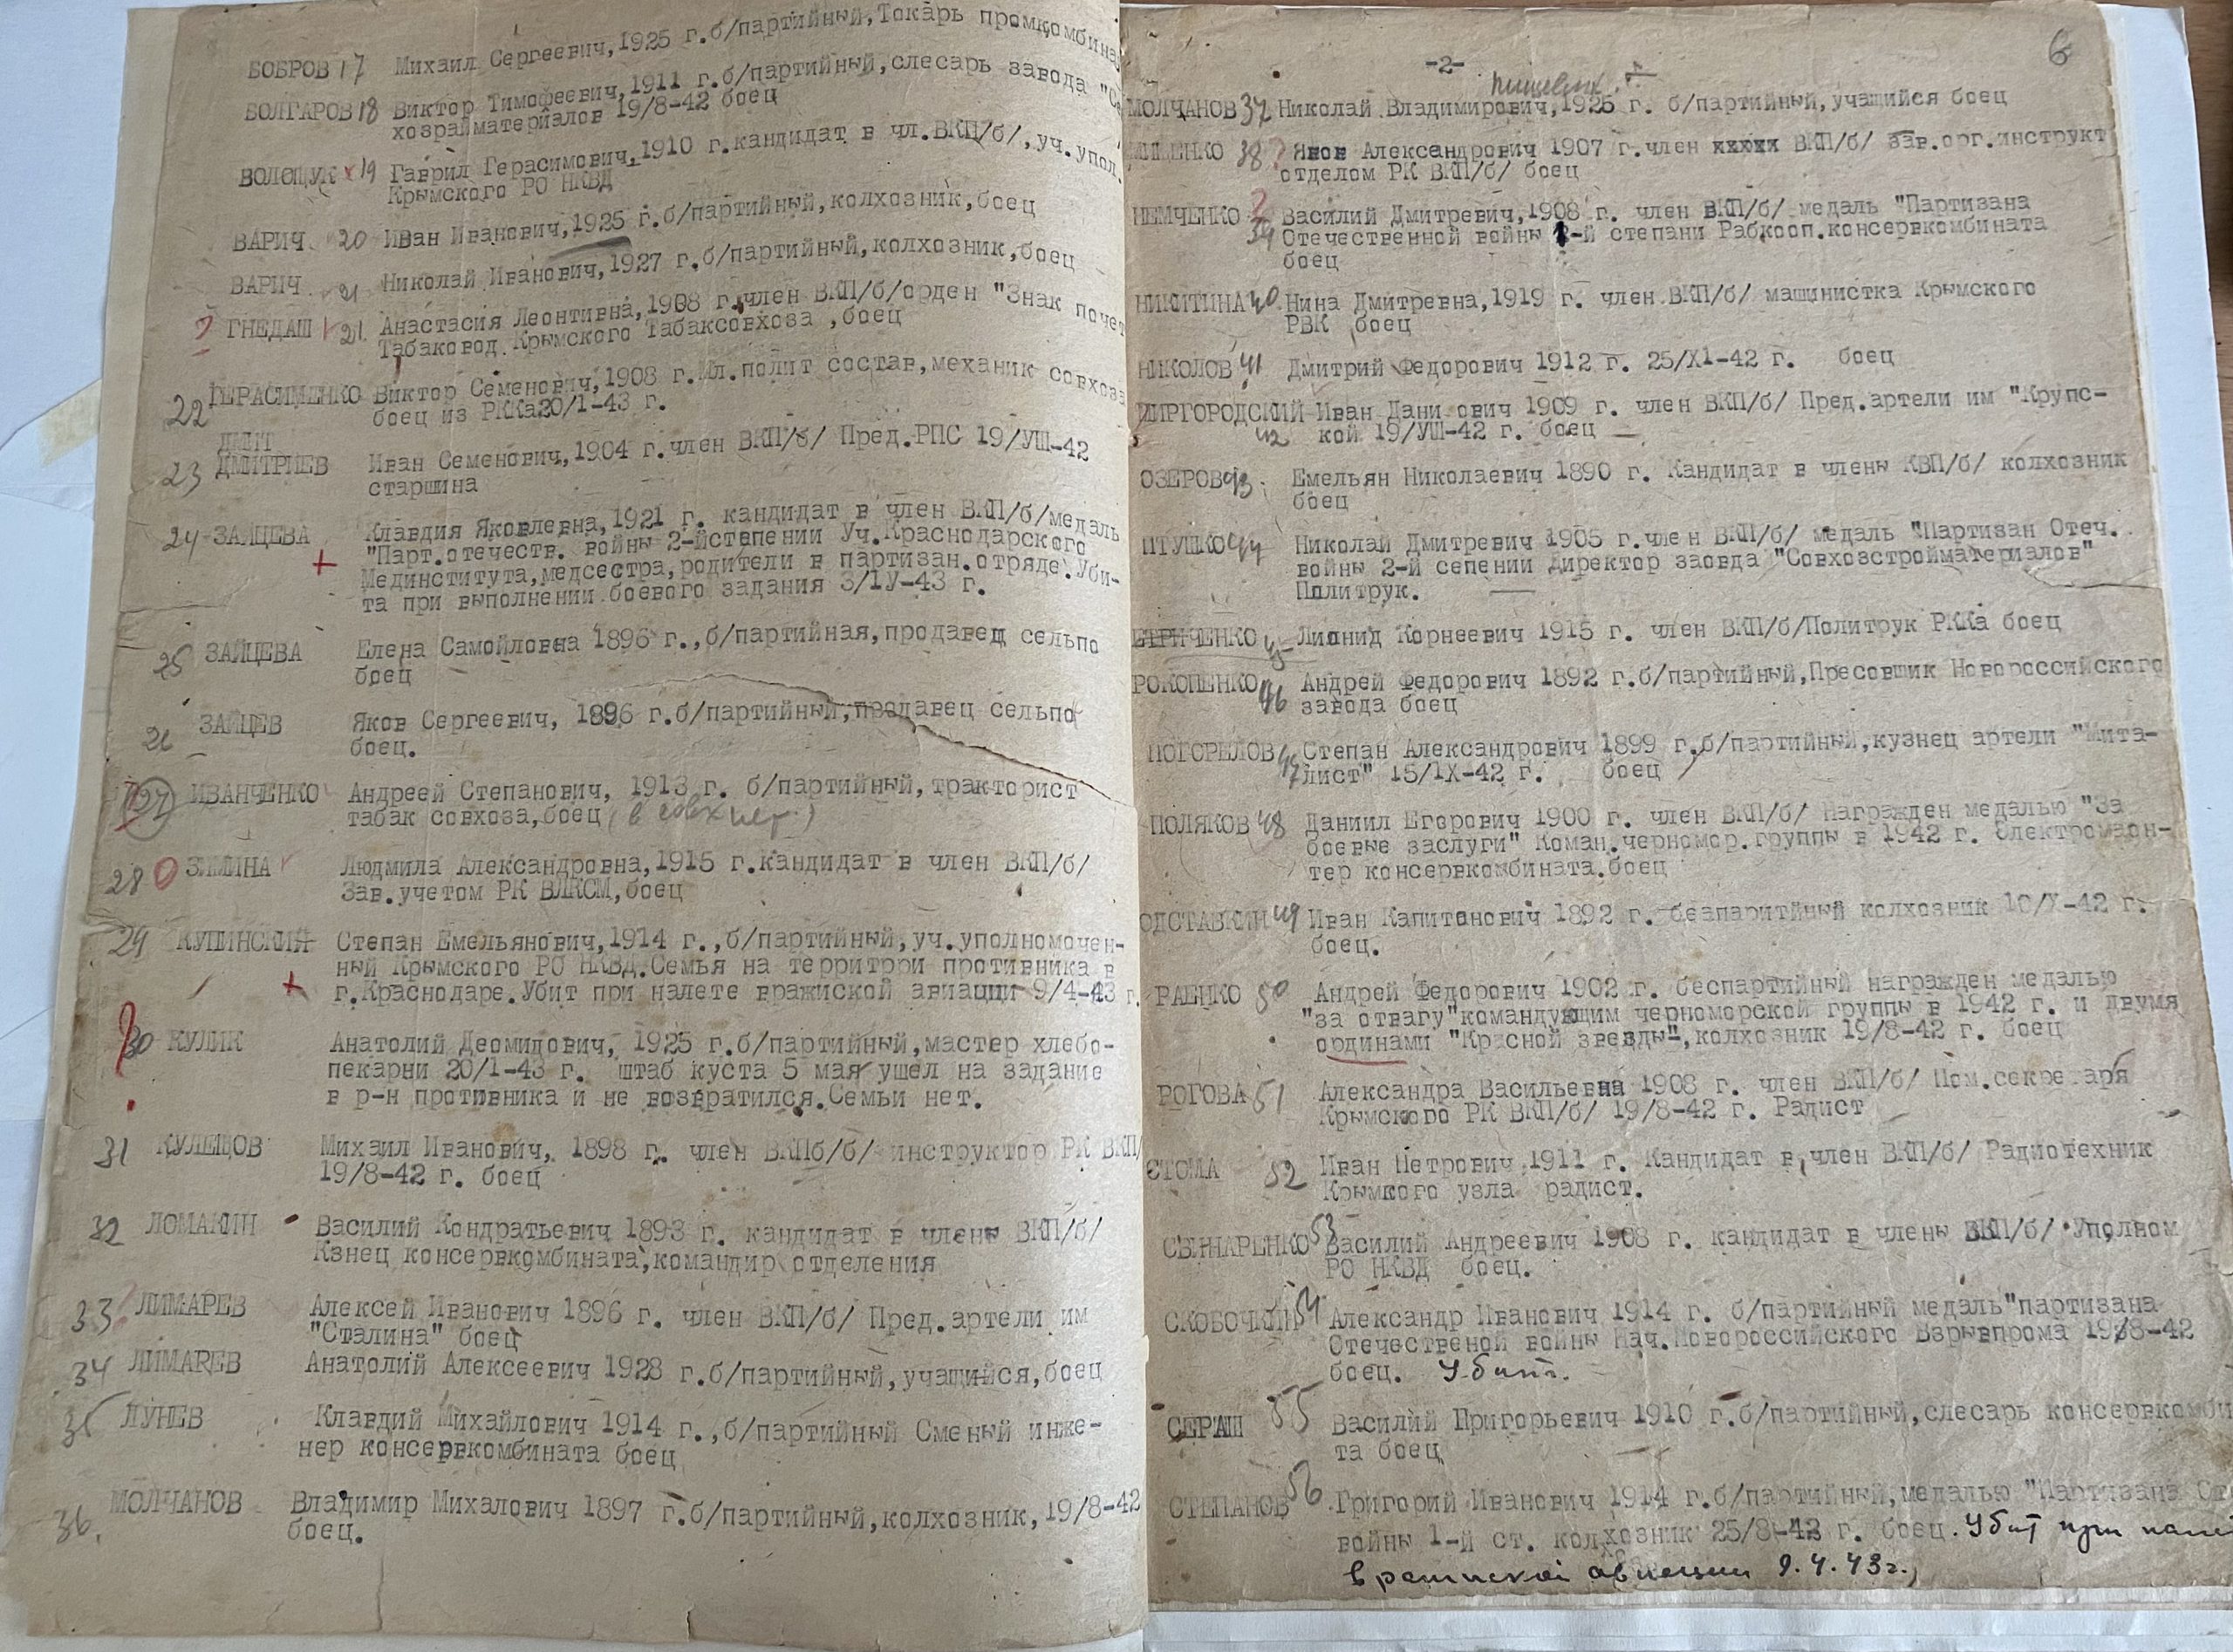 БОБРОВ 17 Михаил Сергеевич,1925 г.б/партийный,Токарь промкомбина
БОЛГАРОВ 18 Виктор Тимофеевич,1911 г.б/партийный,слесарь завода
хозрайматериалов 19/8-42 боец
ВОЛОЩУК 19 Гаврил Герасимович,1910 г.кандидат в чл.ВКП/б/,уч.упол.
Крымского РО НКВД
ВАРИЧ 20 Иван Иванович,1925 г.б/партийный,колхозник,боец
ВАРИЧ 21 Николай Иванович,1927 г.б/партийный,колхозник,боец
? ГНЕДАШ 21. Анастасия Леонтивна,1908 г.член ВКП/б/орден "Знак почет
Табаковод.Крымского Табаксовхоза ,боец
22 ГЕРАСИМЕНКО Виктор Семенович,1908 г.Мл.полит состав,механик совхоза
боец из РККа20/1-43 г.
ДМИТ
23 ДМИТРИЕВ Иван Семенович,1904 г.член ВКП/б/ Пред.РПС 19/УШ-42
старшина
24 ЗАЙЦЕВА Клавдия Яковлевна,1921 г. кандидат в член ВКП/б/медаль
+ "Парт.отечеств. войны 2-йстепении Уч.Краснодарского
Мединститута,медсестра,родители в партизан.отряде.Уби-
та при выполнении боевого задания 3/1У-43 г.
25 ЗАЙЦЕВА Елена Самойловна 1896 г.,б/партийная,продавец сельпо
боец
26 ЗАЙЦЕВ Яков Сергеевич, 1896 г.б/партийный,продавец сельпо
боец.
27 ИВАНЧЕНКО Андреей Степанович, 1913 г. б/партийный,тракторист
табак совхоза,боец (в совх нет)
28 0 ЗИМИНА Людмила Александровна,1915 г.кандидат в член ВКП/б/
Зав.учетом РК ВЛКСМ,боец
29 КУПИНСКИЙ Степан Емельянович,1914 г.,б/партийный,уч.уполномочен-
ный Крымского РО НКВД.Семья на территрои противника в
+ г.Краснодаре.Убит при налете вражиской авиации 9/4-43 г.
?30 КУЛИК Анатолий Деомидович, 1925 г.б/партийный,мастер хлебо-
пекарни 20/1-43 г. штаб куста 5 мая ушел на задание
в р-н противника и не возвратился.Семьи нет.
31 КУЛЕЦОВ Михаил Иванович, 1898 г. член ВКПб/б/ инструктор РК ВКП/
19/8-42 г. боец
32 ЛОМАКИН Василий Кондратьевич 1893 г. кандидат в члены ВКП/б/
Кзнец консервкомбината,командир отделения
33 ЛИМАРЕВ Алексей Иванович 1896 г. член ВКП/б/ Пред.артели им
"Сталина" боец
34 ЛИМАРЕВ Анатолий Алексеевич 1928 г.б/партийный,учащийся,боец
35 ЛУНЕВ Клавдий Михайлович 1914 г.,б/партийный Сменый инже-
нер консервкомбината боец
36. МОЛЧАНОВ Владимир Михалович 1897 г.б/партийный,колхозник,19/8-42
боец.
6
-2-
МОЛЧАНОВ 37 Николай Владимирович,1925 г. б/партийный,учащийся боец
38 ? Яков Александрович 1907 г.член ххххх ВКП/б/ зав.орг.инструкт
отделом РК ВКП/б/ боец
НЕМЧЕНКО ? Василий Дмитревич,1908 г. член ВКП/б/ медаль "Партизана
39 Отечественной войны 1-й степани Рабкооп.консервкомбината
боец
НИКИТИНА 40 Нина Дмитревна,1919 г. член ВКП/б/ машинистка Крымского
РВК боец
НИКОЛОВ 41 Дмитрий Федорович 1912 г. 25/Х1-42 г. боец
МИРГОРОДСКИЙ Иван Дани ович 1909 г. член ВКП/б/ Пред.артели им "Крупс-
42 кой 19/УШ-42 г. боец
ОЗЕРОВ 43. Емельян Николаевич 1890 г. Кандидат в члены КВП/б/ колхозник
боец
ПТУШКО 44 Николай Дмитревич 1905 г.член ВКП/б/ медаль "Партизан Отеч.
войны 2-й сепении Директор заовда "Совхозстройматериалов"
Политрук.
ЕТРИЧЕНКО 45 Лионид Корнеевич 1915 г. член ВКП/б/Политрук РККа боец
РОКОПЕНКО 46 Андрей Федорович 1892 г.б/партийный,Пресовшик Новороссийского
завода боец
ПОГОРЕЛОВ 47 Степан Александрович 1899 г.б/партийный,кузнец артели "Мита-
лист" 15/1Х-42 г. боец
ПОЛЯКОВ 48 Даниил Егорович 1900 г. член ВКП/б/ Награжден медалью "За
боевые заслуги" Коман.черномор.группы в 1942 г. Електромаон-
тер консервкомбината.боец
ОДСТАВКИН 49 Иван Капитонович 1892 г. безпаритйный колхозник 10/Х-42 г.
боец.
РАЕНКО 50 Андрей Федорович 1902 г. беспартийный награжден медалью
"за отвагу"командующим черноморской группы в 1942 г. и двумя
ординами "Красной звезды",колхозник 19/8-42 г. боец
РОГОВА 51 Александра Васильевна 1908 г. член ВКП/б/ Пом.секретаря
Крымского РК ВКП/б/ 19/8-42 г. Радист
СТОМА 52 Иван Петрович 1911 г. Кандидат в член ВКП/б/ Радиотехник
Крымкого узла радист.
53 Василий Андреевич 1908 г. кандидат в члены ВКП/б/ Уполном
РО НКВД боец.
СКОБОЧКИН 54 Александр Иванович 1914 г. б/партийный медаль"партизана
Отечественой войны Нач.Новороссийского Взрывпрома 19/8-42
боец. Убит.
СЕРАШ 55 Василий Пригорьевич 1910 г.б/партийный,слесарь консервкомби
та боец
СТЕПАНОВ 56 Григорий Иванович 1914 г.б/партийный,медалью "Партизана От
войны 1-й ст. колхозник 25/8-42 г. боец. Убит при нале
вражиской авиации 9.4.43г.